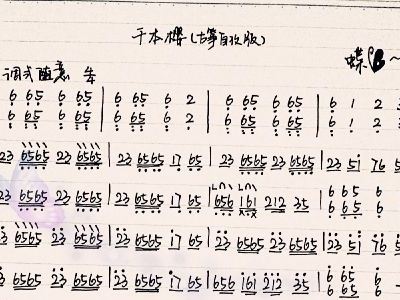 千本樱(古筝自改版)
蝶
调式随意 
6 65 6 65 | 6 65 6 2 | 6 65 6 65 | 6 1 2 3
6 65 6 65 | 6 65 6 2 | 6 65 6 65 | 6 1 2 3
23 6565 23 6565 | 23 6565 17 65 | 23 6565 23 6565 | 23 51 76 5
23 6565 23 6565 | 23 6565 17 65 | 656 161 212 35 | 6 65 6
6 65 6
23 6565 23 6565 | 23 6565 17 65 | 23 6565 23 6565 | 23 51 76 5
23 6565 23 6565 | 23 6565 17 65 | 656 161 212 35 | 6 65 6
6 65 6